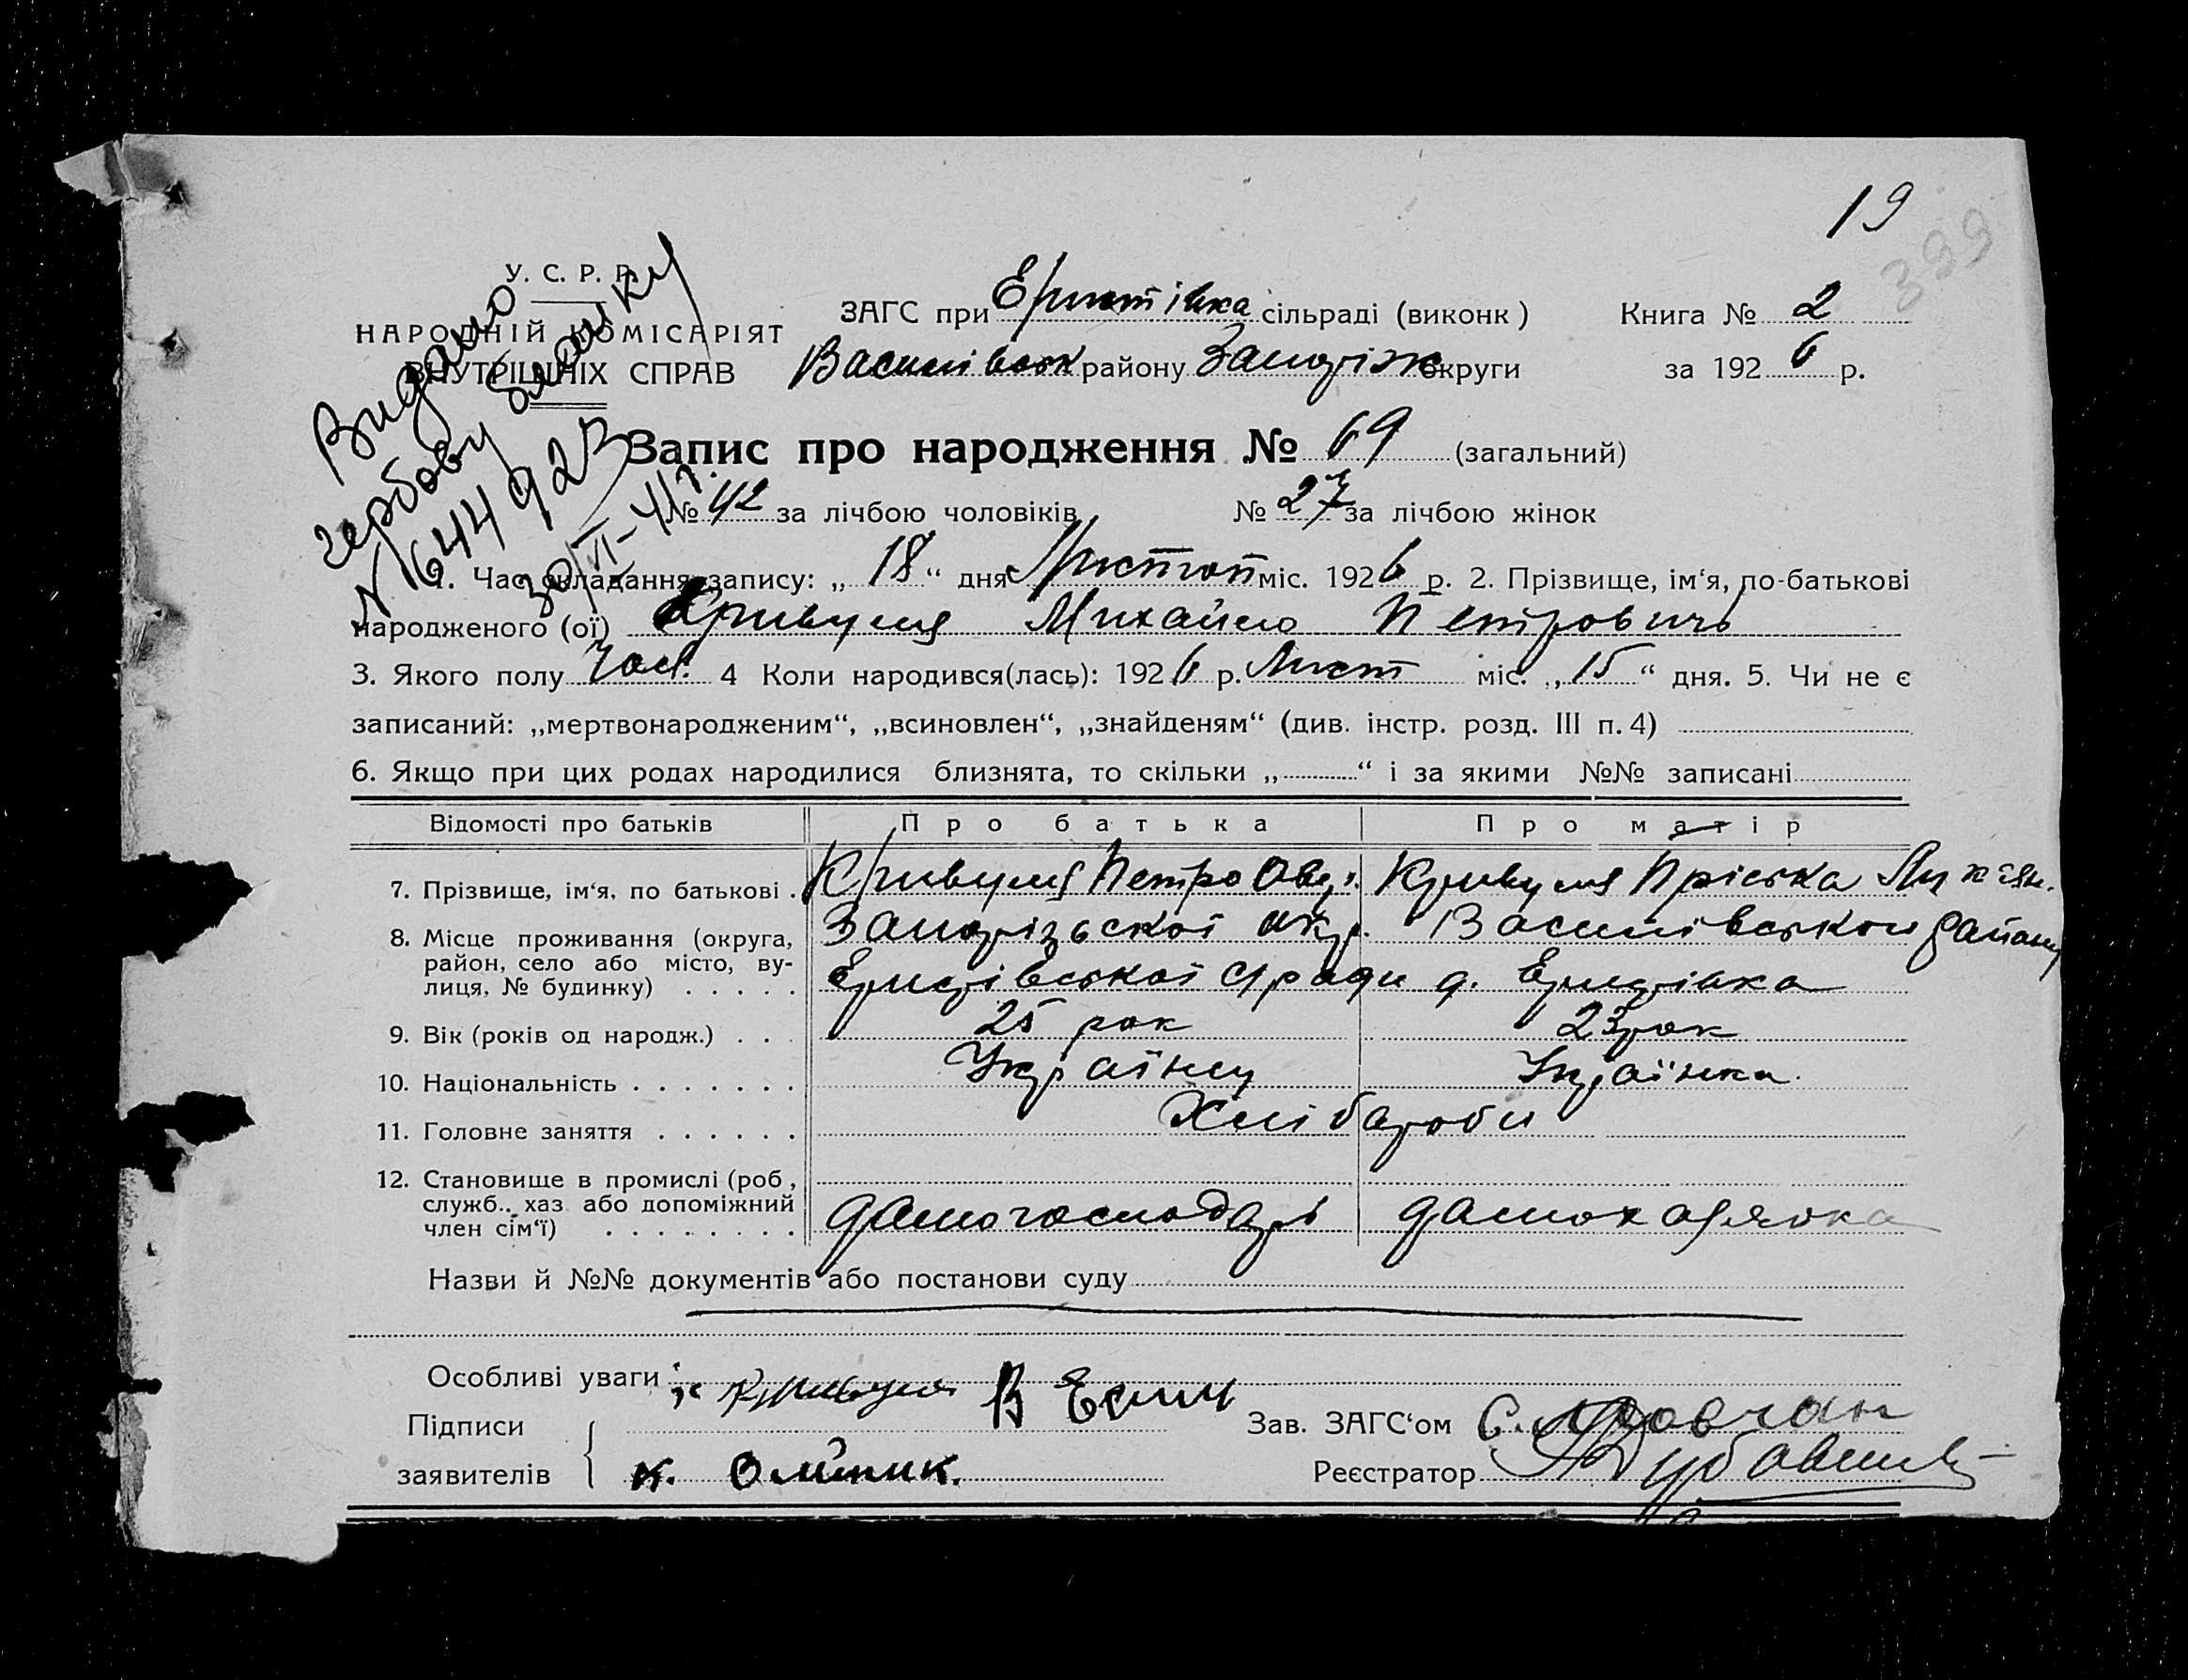 19
399
У. С. Р. Р.
НАРОДНІЙ КОМІСАРІЯТ
ВНУТРІШНІХ СПРАВ
Видано
гербову бланку
N 644923
30/VI-41 г.
ЗАГС при сільраді (виконк )
Василівськ району Запоріж округи
Книга № 2
за 192 6 р.
Запис про народження № 69 (загальний)
№ 42 за лічбою чоловіків № 27 за лічбою жінок
1. Час складання запису: „ 18 “ дня Листоп міс. 192 6 р. 2. Прізвище, ім‘я, по-батькові
народженого (ої) Кривуля Михайло Петровичь
3. Якого полу Чол. 4 Коли народився(лась): 192 6 р. Лист міс. „ 15 “ дня. 5. Чи не є
записаний: „мертвонародженим“, „всиновлен“, „знайденям“ (див. інстр. розд. III п. 4)
6. Якщо при цих родах народилися близнята, то скільки „ “ і за якими №№ записані
Відомості про батьків Про батька Про матір
7. Прізвище, ім‘я, по батькові . Кривуля Петро Кривуля Пріська Лукян.
8. Місце проживання (округа, Запорізської окр. Василівського району
район, село або місто, ву-
лиця, № будинку) . . . . .
9. Вік (років од народж.) . . . 25 рок 23 рок
10. Національність . . . . . . . Українец Українка.
11. Головне заняття . . . . . . Хлібороби
12. Становище в промислі (роб ,
служб.. хаз або допоміжний
член сім‘ї) . . . . . . . . домогосподарь домохазяйка
Назви й №№ документів або постанови суду
Особливі уваги
Кривуля
Підписи
заявителів
к. Олійник.
Зав. ЗАГС‘ом
Реєстратор